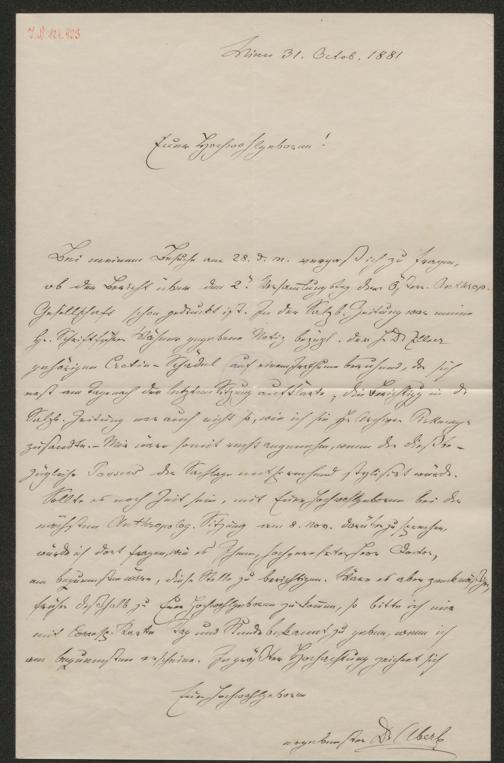 J.N. 121.923
Wien 31. Octob. 1881
Euer Hochwohlgeboren!
Bei meinem Besuche am 28. d. M. vergaß ich zu fragen,
ob der Bericht über den 2. Versammlungstag der Öster. Anthrop.
Gesellschaft schon gedruckt ist. In der Salzb. Zeitung war meine
H. Schriftführer gegebene Notiz bezügl. der H. Dr. Zillner
gehörigen Cretin-Schädel auf einem Irrthume beruhend, der sich
erst am Tage nach der letzten Sitzung aufklärte; die Berichtigg in d.
Salzb. Zeitung war auch nicht so, wie ich sie H. Archivar Pirkmayer
zusandte. – Mir wäre somit recht angenehm, wenn der dießbe-
zügliche Passus der Sachlage entsprechend stylisirt würde.
Sollte es noch Zeit sein, mit Euer Hochwohlgeboren bei der
nächsten Anthropolog. Sitzung am 8. Nov. darüber zu sprechen,
würde ich dort fragen, wie es Ihnen, hochverehrter Herr Doctor,
am bequemsten wäre, diese Stelle zu berichtigen. Wäre es aber zweckmäßiger,
früher deßhalb zu Euer Hochwohlgeboren zu kommen, so bitte ich mir
mit Corresp. Karte Tag und Stunde bekannt zu geben, wann ich
am bequemsten erscheine. In größter Hochachtung zeichnet sich
Euer Hochwohlgeboren
ergebenster Dr. Aberle